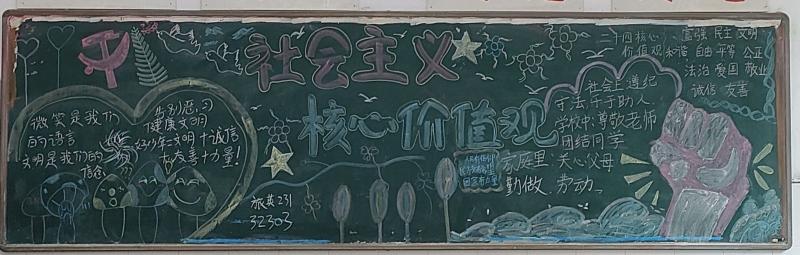 社会主义
核心价值观
微笑是我们
的语言
文明是我们的
信念
告别恶习
健康文明
好少年=文明+诚信
+友善+力量!
旅英231
32303
二十四核心 富强 民主 文明
价值观 和谐 自由 平等 公正
法治 爱国 敬业
诚信 友善
社会上遵纪
守法 乐于助人
学校中:尊敬老师
团结同学
家庭里:关心父母
勤做 劳动